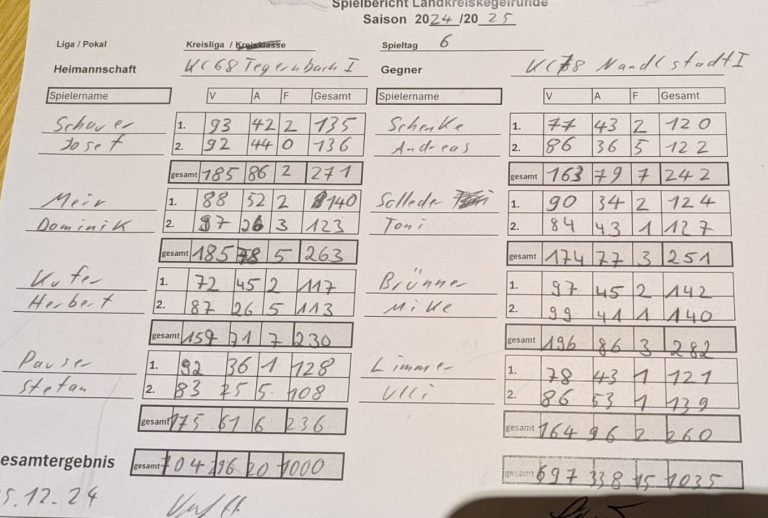 Spielbericht Landkreiskegelrunde
Saison 2024 /20 25
Liga / Pokal Kreisliga / Kreisklasse Spieltag 6
Heimannschaft KC68 Tegernbach I Gegner KC78 Nandlstadt I
Spielername V A F Gesamt Spielername V A F Gesamt
Schauer 1. 93 42 2 135 Schenke 1. 77 43 2 120
Josef 2. 92 44 0 136 Andreas 2. 86 36 5 122
gesamt 185 86 2 271 gesamt 163 79 7 242
Meir 1. 88 52 2 140 Solleder 1. 90 34 2 124
Dominik 2. 97 26 3 123 Toni 2. 84 43 1 127
gesamt 185 78 5 263 gesamt 174 77 3 251
Kufer 1. 72 45 2 117 Brünner 1. 97 45 2 142
Herbert 2. 87 26 5 113 Mike 2. 99 41 1 140
gesamt 159 71 7 230 gesamt 196 86 3 282
Pauser 1. 92 36 1 128 Limmer 1. 78 43 1 121
Stefan 2. 83 25 5 108 Ulli 2. 86 53 1 139
gesamt 175 61 6 236 gesamt 164 96 2 260
esamtergebnis gesamt 704 296 20 1000 gesamt 697 338 15 1035
5.12.24